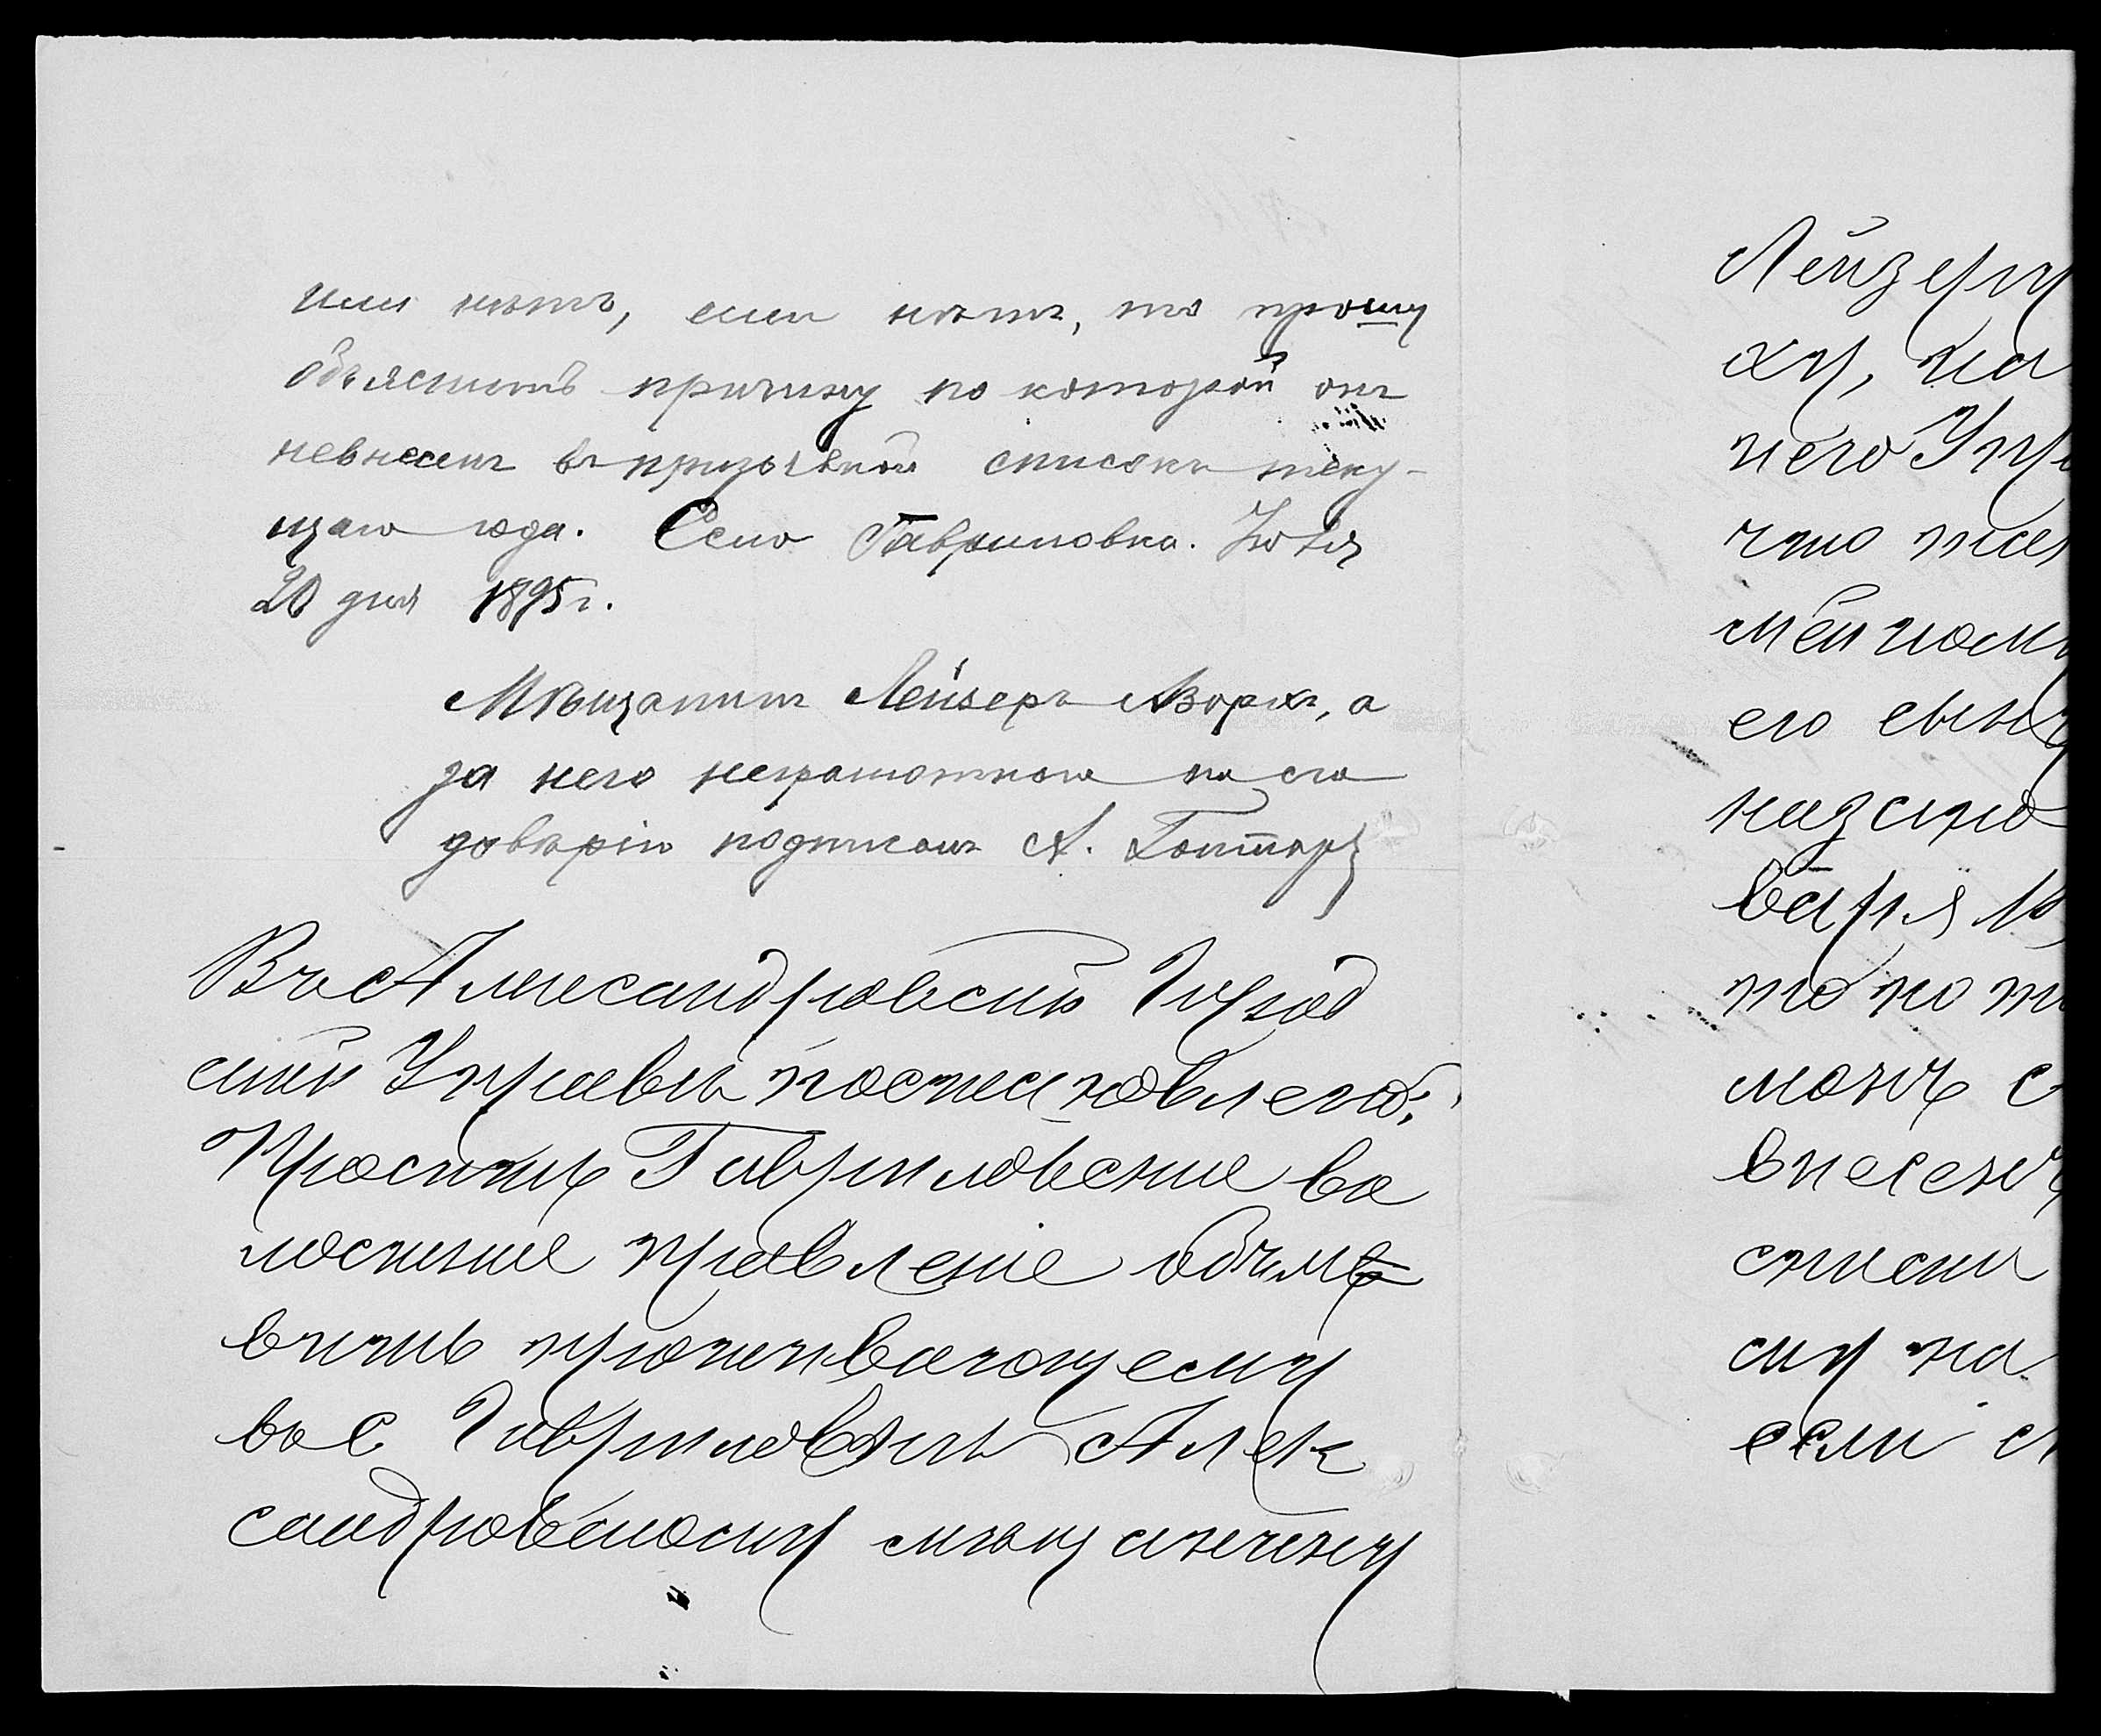 или нѣтъ, если нѣтъ, то прошу
объяснить причину по которой онъ
невнесенъ въ призывной списокъ теку-
щаго года. Село Гавриловка. Іюля
20 дня 1895 г.
Мѣщанинъ Лейзеръ Аворхъ, а
за него неграмотнаго по его
довѣрію подписалъ А. Готтар
Въ Александровской Город
ской Управѣ постановлено:
Просить Гавриловское во
лостное правленіе объя
вить проживающему
въ с Гавриловкѣ Алек
сандровскому мѣщанину
Лейзеру
ху, на
него Упр
что
мѣнному
его сыну
на
варя 18
то по
можъ с
внесенъ
списки
ску на
если с